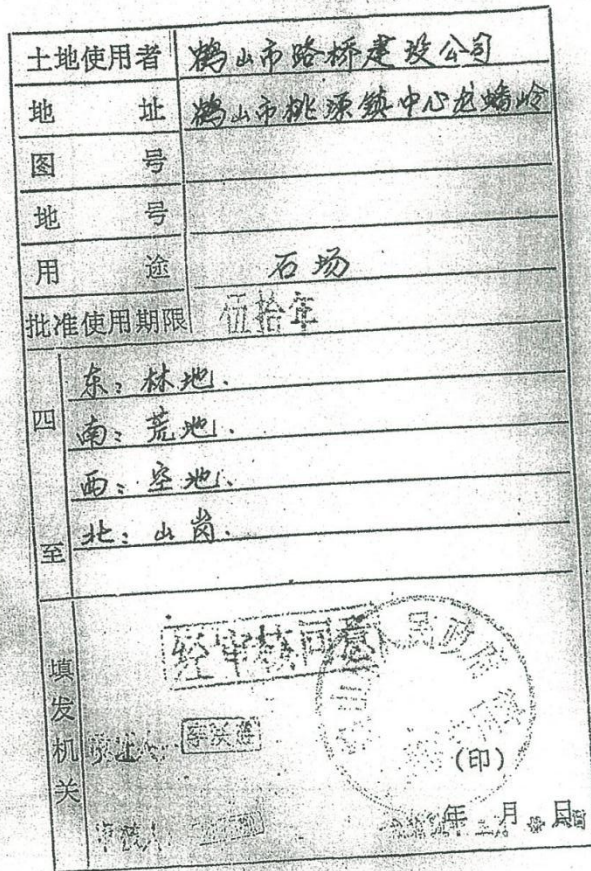 土地使用者 鹤山市路桥建设公司
地址 鹤山市桃源镇中心龙蟠岭
图号
地号
用途 石场
批准使用期限 伍拾年
四至
东：林地.
南：荒地.
西：空地.
北：山岗.
填发机关
经审核同意
人民政府
(印)
年 月 日